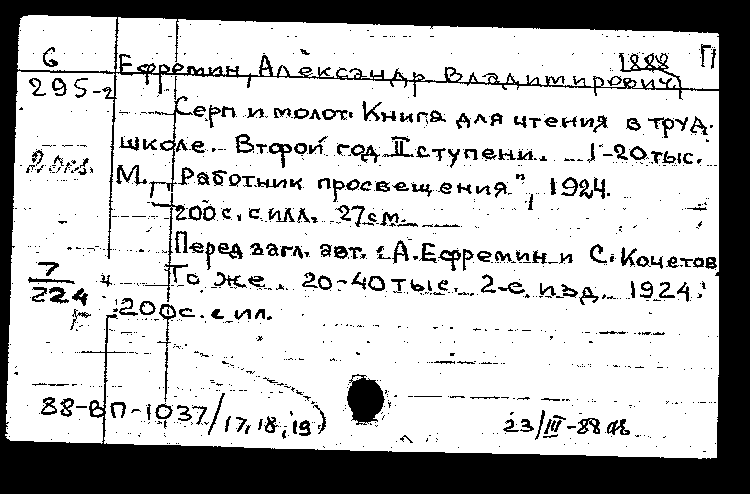 1888 П
6 Ефремин, Александр Владимирович.
295-2
Серп и молот. Книга для чтения в труд.
школе. Второй год II ступени. 1-20 тыс.
2 экз. М., „Работник просвещения", 1924.
200 с. с илл. 27 см.
Перед загл. авт.: А. Ефремин и С. Кочетов
7/224 То же. 20-40 тыс. 2-е изд. 1924.
200 с. с ил.
88-ВП-1037/17,18,19
23/III-88